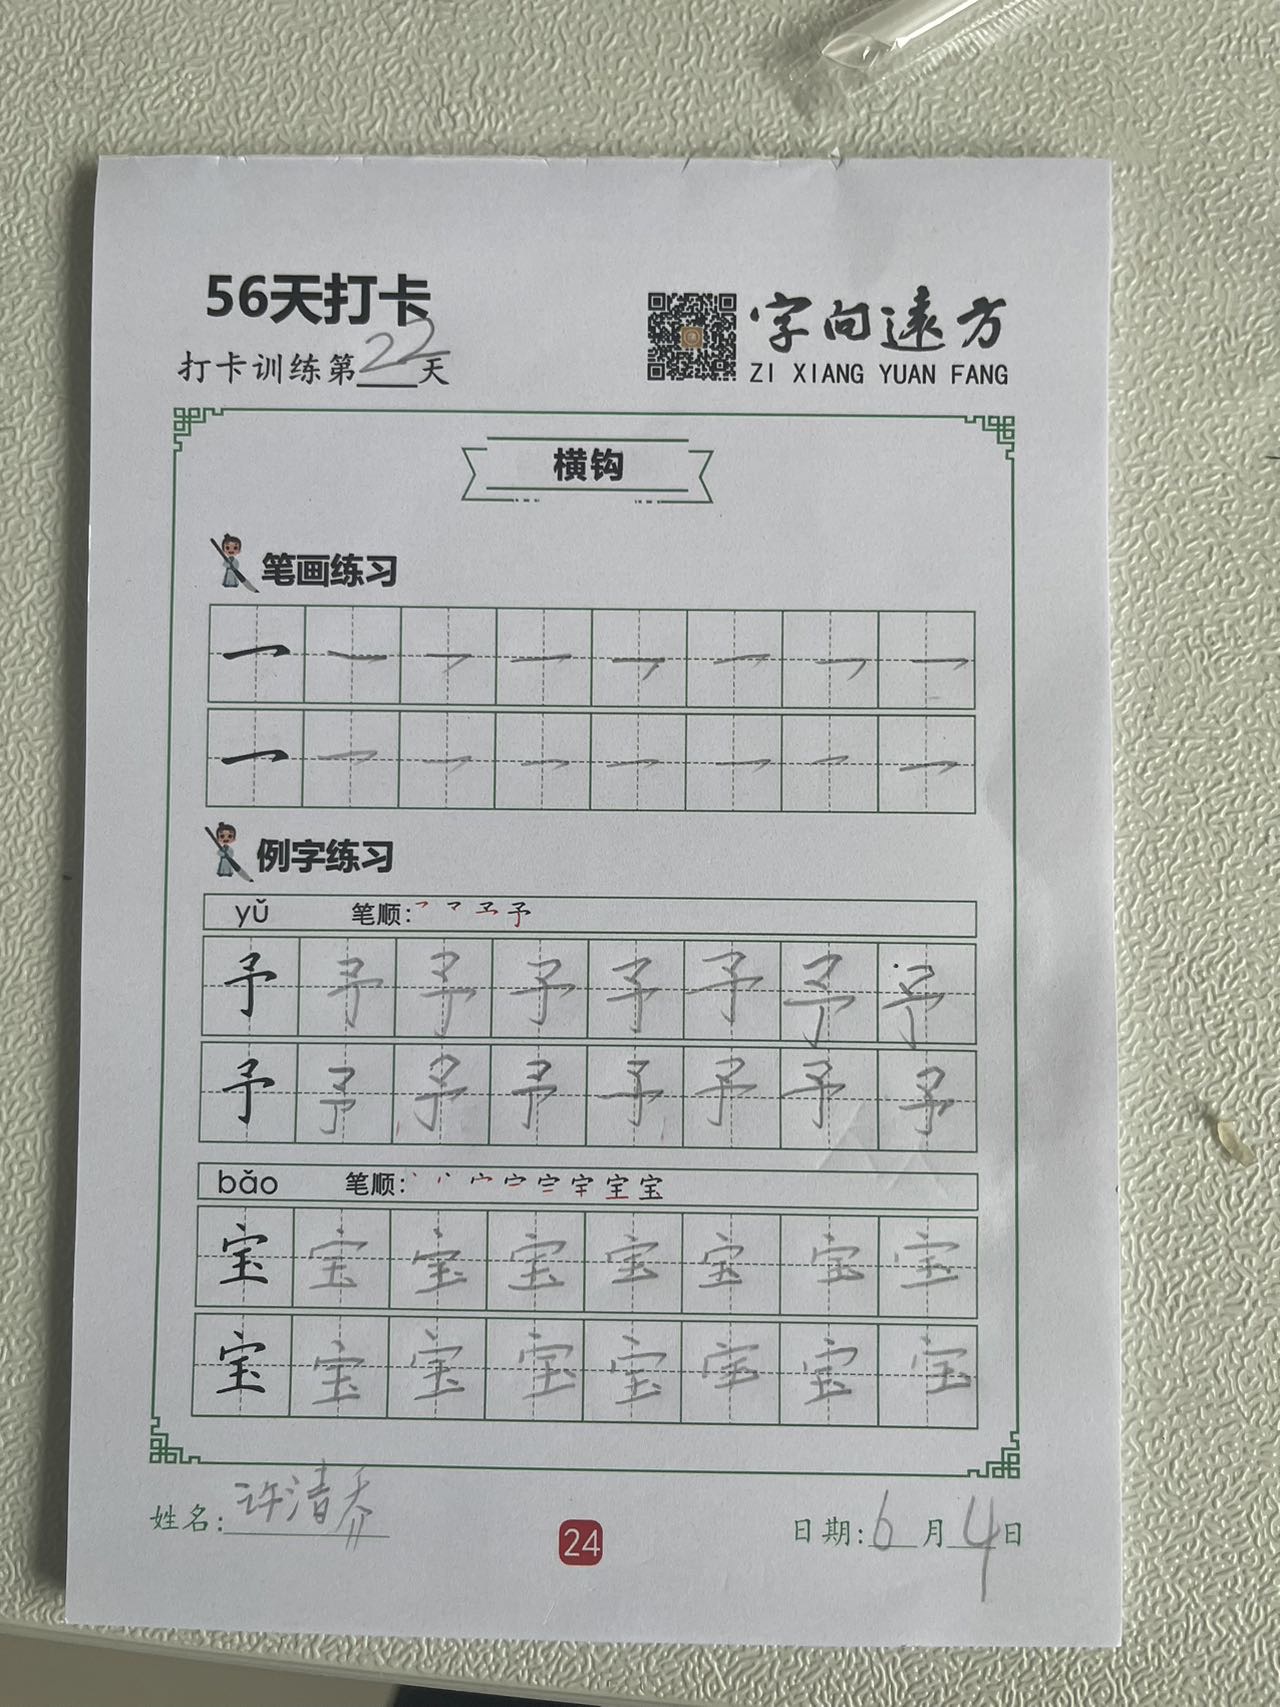 56天打卡
打卡训练第22天
字向遠方
ZI XIANG YUAN FANG
横钩
笔画练习
一 一 一 一 一 一 一 一
一 一 一 一 一 一 一 一
例字练习
yǔ 笔顺: 予
予 予 予 予 予 予 予 予
予 予 予 予 予 予 予 予
bǎo 笔顺: 丶 丷 宀 宀 宀 宇 宝 宝
宝 宝 宝 宝 宝 宝 宝 宝
宝 宝 宝 宝 宝 宝 宝 宝
姓名: 许清乔
24
日期: 6月4日